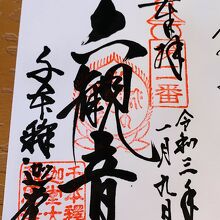 奉拝
令和三年
一月九日
六観音
千本釋迦堂
一番
千本釋
迦堂大